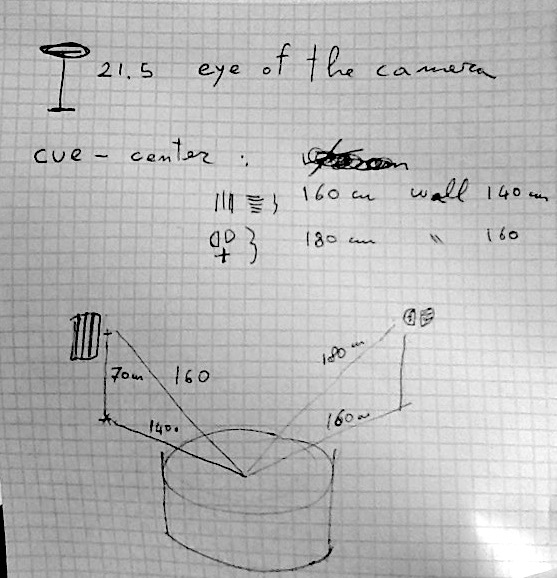 21.5 eye of the camera
cue - center :
160 cm wall 140 cm
180 cm " 160
70cm
160
140
180 cm
160 cm